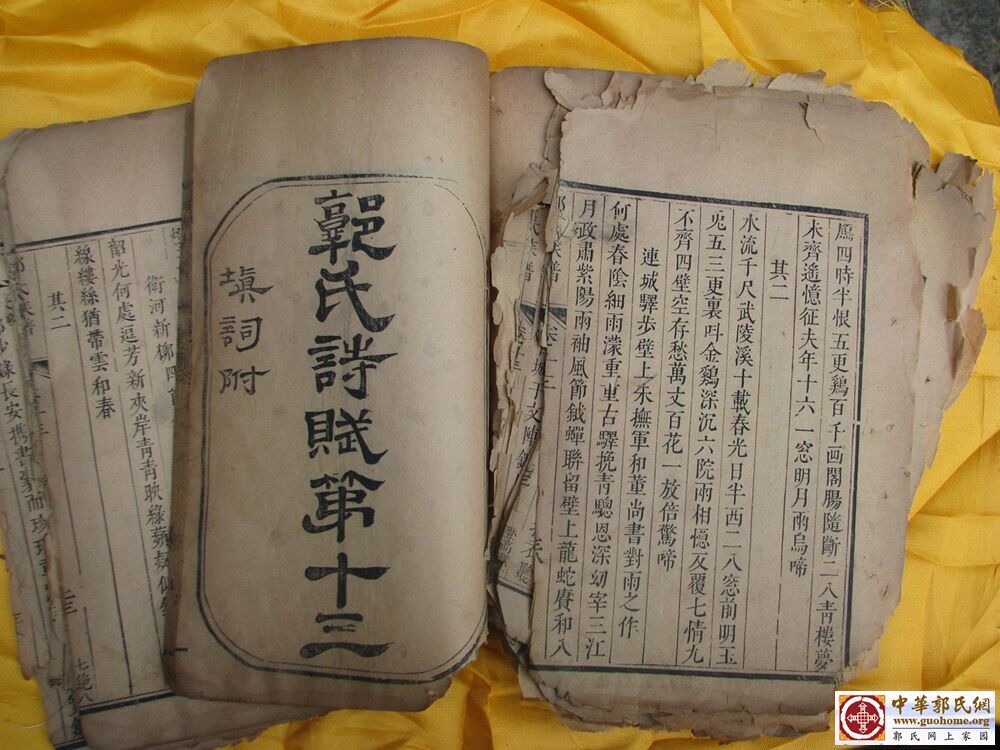 鴈四時半恨五更鷄百千画閣腸隨斷二八青樓夢
未齊遙憶征夫年十六一窓明月兩烏啼
其二
水流千尺武陵溪十載春光日半西二八窓前明玉
兎五三更裏呌金鷄深沉六院兩相憶反覆七情九
不齊四壁空存愁萬丈百花一放倍驚啼
連城驛步壁上朱撫軍和董尚書對雨之作
何處春陰細雨濛重重古驛挽青驄恩深幼宰三江
月政肅紫陽兩袖風節鉞蟬聯留壁上龍蛇賡和八
郭氏詩賦第十三
填詞附
衛河新柳四首
韶光何處逗芳新夾岸青青映綠蘋
線縷絲猶帶雲和春
其二
長安携書
中華郭氏網
www.guohome.org
郭氏網上家園